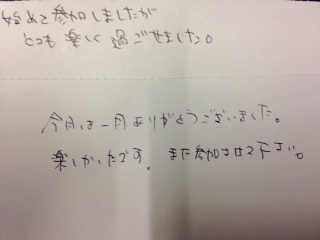 始めて参加しましたが
とても楽しく過ごせました。
今日は一日ありがとうございました。
楽しかったです。また参加させて下さい。